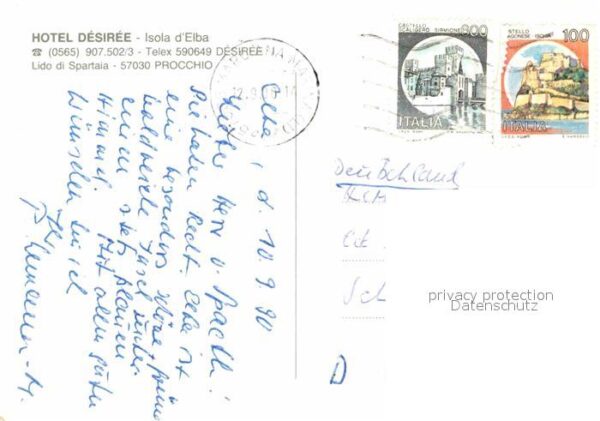 HOTEL DÉSIRÉE - Isola d'Elba
☎ (0565) 907.502/3 - Telex 590649 DÉSIRÉE I
Lido di Spartaia - 57030 PROCCHIO
CASTELLO
SCALIGERO SIRMIONE
800
ITALIA
STELLO
AGONESE ISCHIA
100
ITALIA
12.9.
Elba, d. 10.9.90
Lieber Herr v. Spach!
Sie haben Recht. Elba ist
eine besonders schöne grüne
waldreiche Insel unter
einem stets blauen
Himmel. Mit allen guten
Wünschen bin ich
Ihr
Deutschland
D
privacy protection
Datenschutz